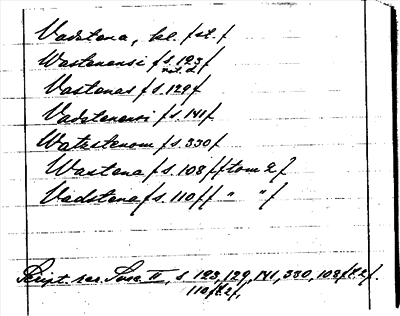 Vadstena, kl. /st./
Wastenensi /s. 123/
not. d
Vastenas /s. 129/
Vadstenensi /s. 141/
Watzstenom /s. 330/
Wastena /s. 108 //tom 2/
Vadstena /s. 110 // " " /
Script. rer. Svec. II, s 123, 129, 141, 330, 108/t.2/.
110/t.2/,